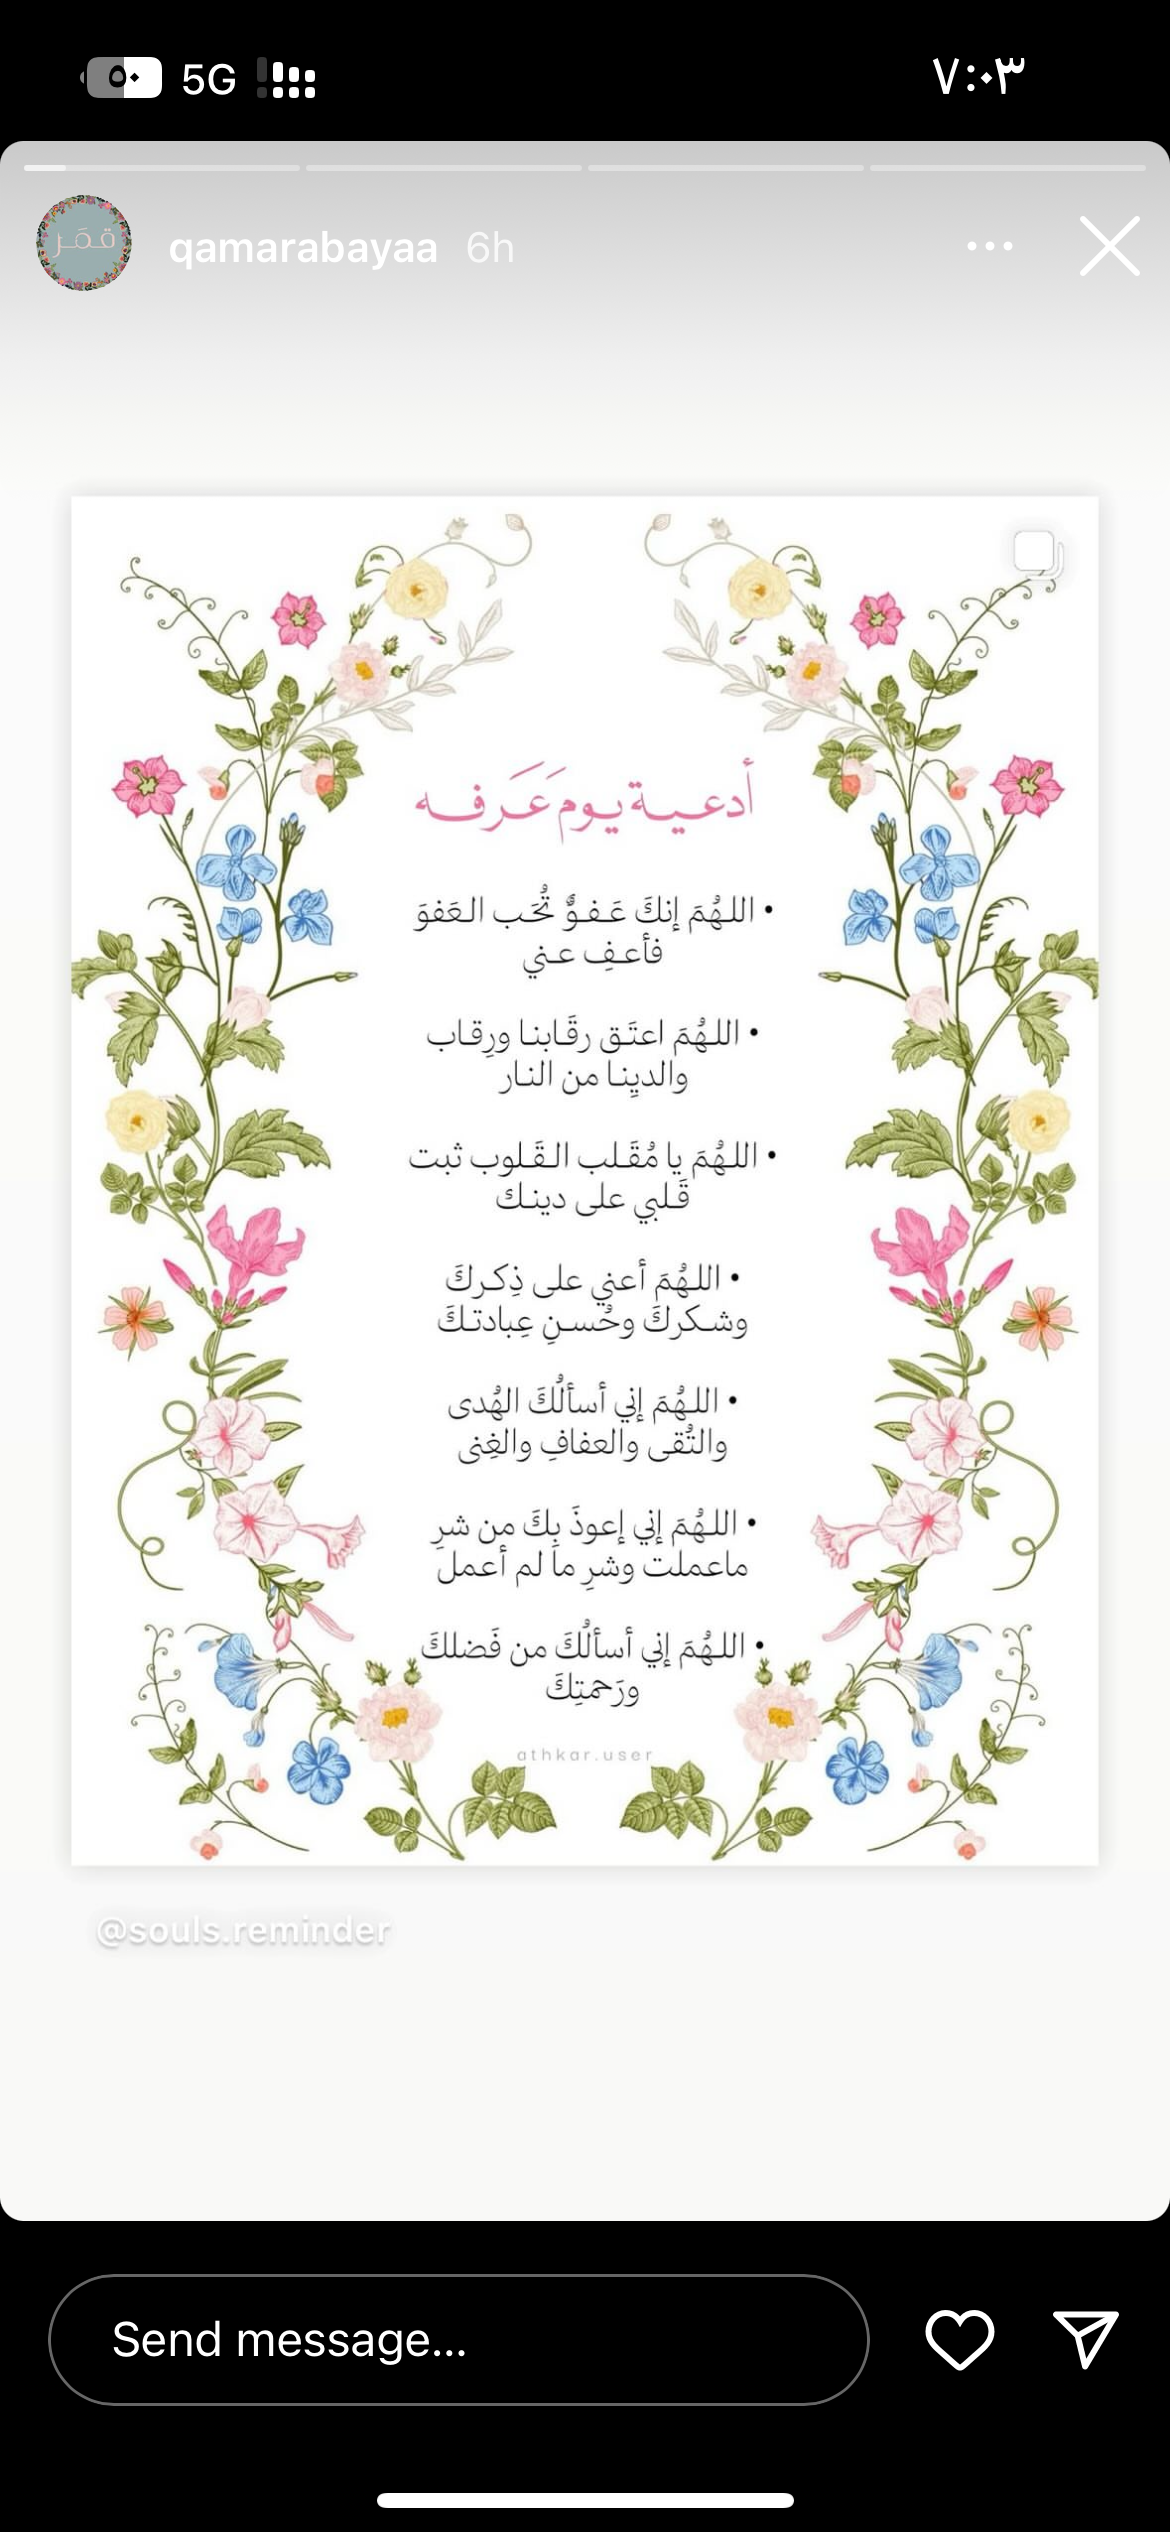 ٥٠ 5G ٧:٠٣
قمَر
qamarabayaa 6h
أدعية يوم عَرفه
• اللهُمَ إنكَ عَفوٌّ تُحَب العَفوَ
فأعفِ عني
• اللهُمَ اعتَق رقَابنا ورِقاب
والدينِا من النار
• اللهُمَ يا مُقَلب القَلوب ثبت
قَلبي على دينك
• اللهُمَ أعني على ذِكركَ
وشكركَ وحُسنِ عِبادتكَ
• اللهُمَ إني أسألُكَ الهُدى
والتُقى والعفافِ والغِنى
• اللهُمَ إني إعوذَ بِكَ من شرِ
ماعملت وشرِ ما لم أعمل
• اللهُمَ إني أسألُكَ من فَضلكَ
ورَحمتِكَ
athkar.user
@souls.reminder
Send message...